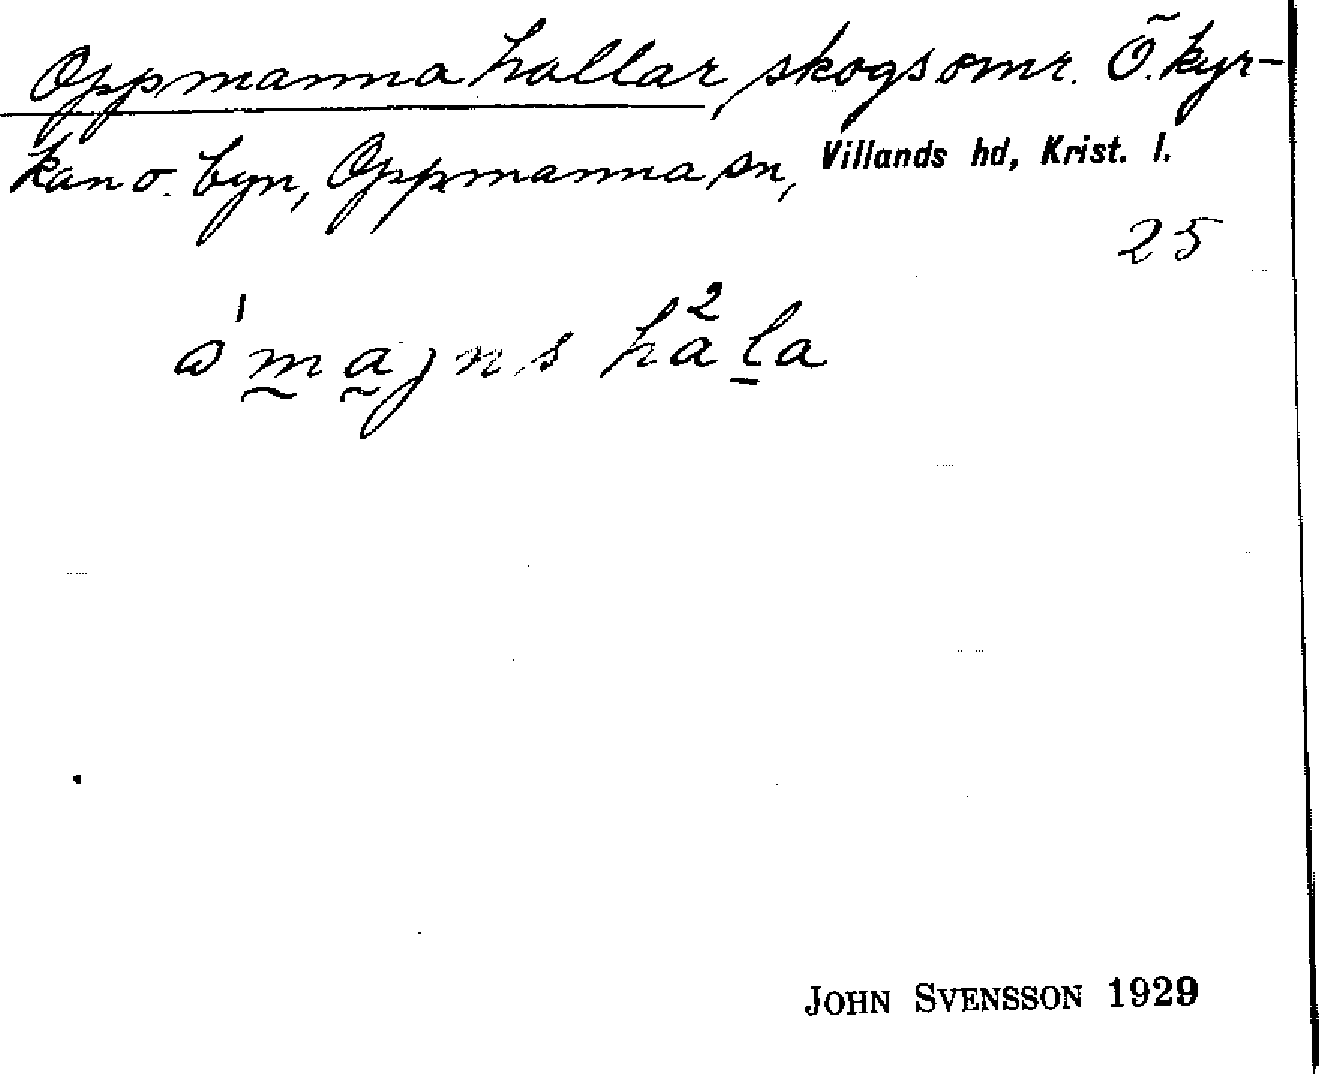 Oppmanna hallar, skogsomr. Ö. kyr-
kan o. byn, Oppmanna sn, Villands hd, Krist. l.
25
John Svensson 1929